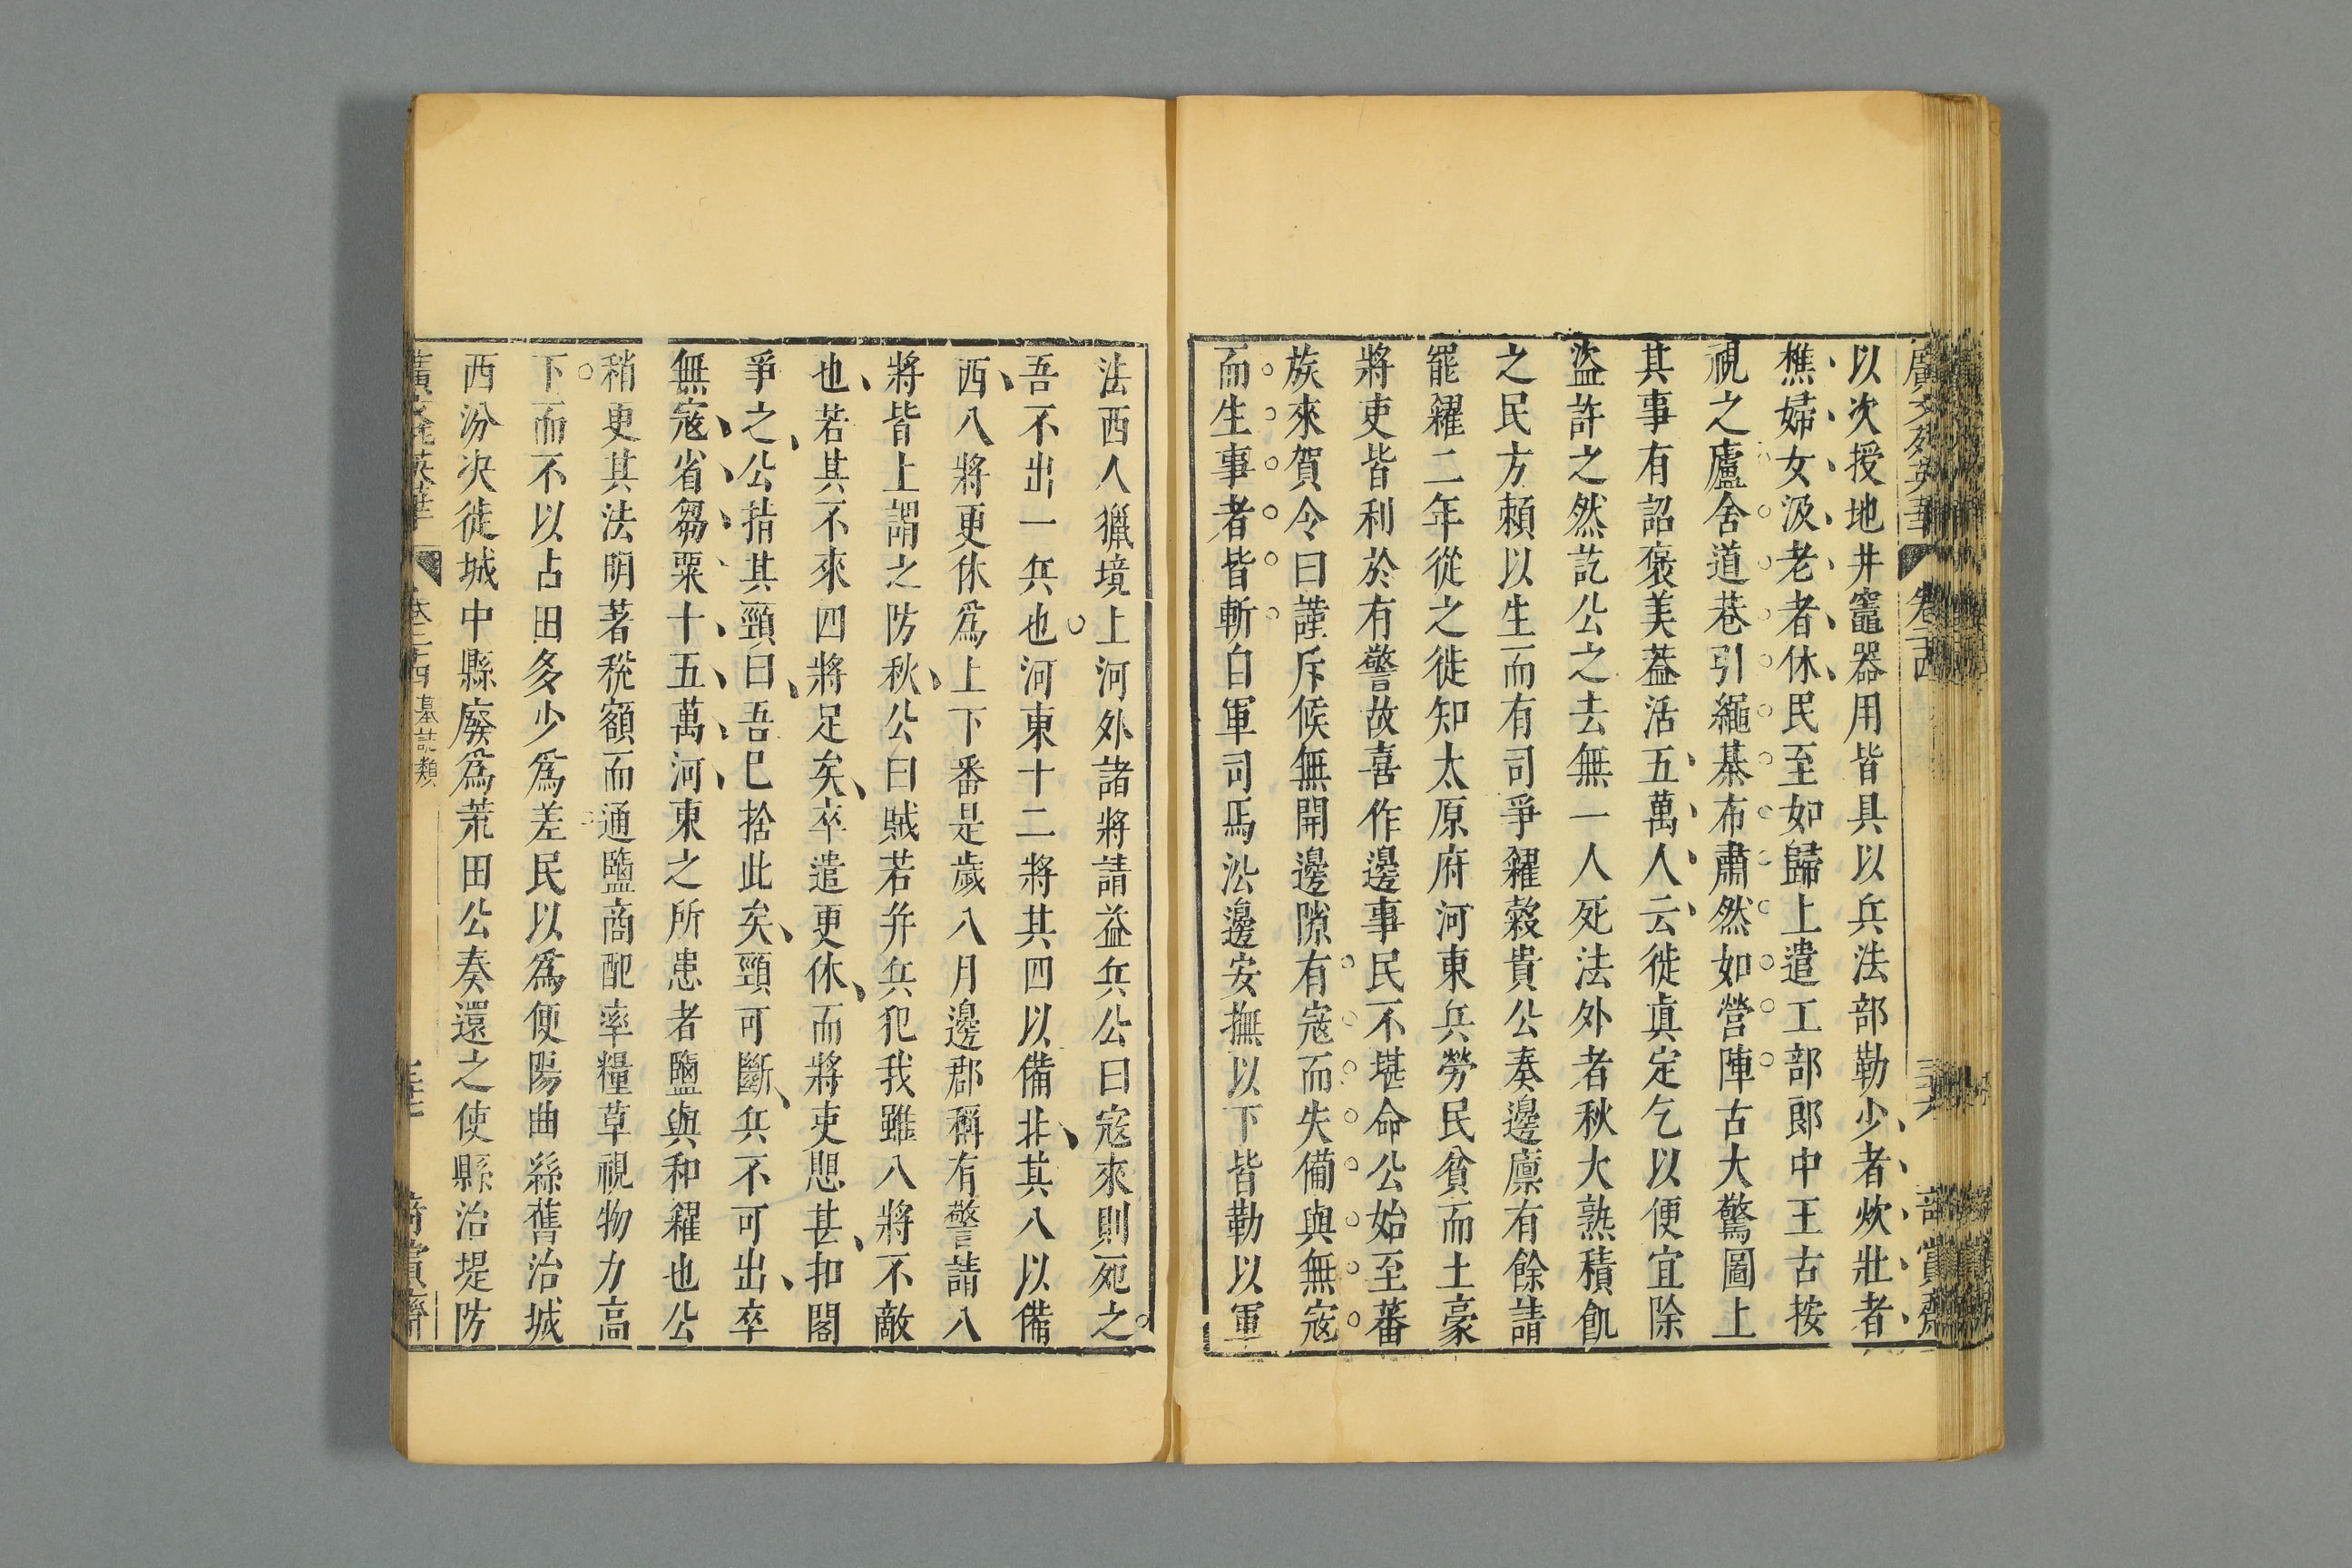 廣文苑英華 卷二十四
以次授地井竈器用皆具以兵法部勒少者炊壯者
樵婦女汲老者休民至如歸上遣工部郎中王古按
視之廬舍道巷引繩棊布肅然如營陣古大驚圖上
其事有詔褒美葢活五萬人云徙真定乞以便宜除
盜許之然訖公之去無一人死法外者秋大熟積飢
之民方頼以生而有司爭糴榖貴公奏邊廩有餘請
罷糴二年從之徙知太原府河東兵勞民貧而土豪
將吏皆利於有警故喜作邊事民不堪命公始至蕃
族來賀令曰謹斥候無開邊隙有寇而失備與無寇
而生事者皆斬自軍司馬㳂邊安撫以下皆勒以軍
法西人獵境上河外諸將請益兵公曰寇來則死之
吾不出一兵也河東十二將其四以備北其八以備
西八將更休爲上下番是歲八月邊郡稱有警請八
將皆上謂之防秋公曰賊若并兵犯我雖八將不敵
也若其不來四將足矣卒遣更休而將吏懼甚扣閣
爭之公指其頸曰吾已捨此矣頸可斷兵不可出卒
無寇省芻粟十五萬河東之所患者鹽與和糴也公
稍更其法明著稅額而通鹽商配率糧草視物力高
下而不以占田多少爲差民以爲便陽曲縣舊治城
西汾决徙城中縣廢爲荒田公奏還之使縣治堤防
廣文苑英華 卷二十四 墓誌類